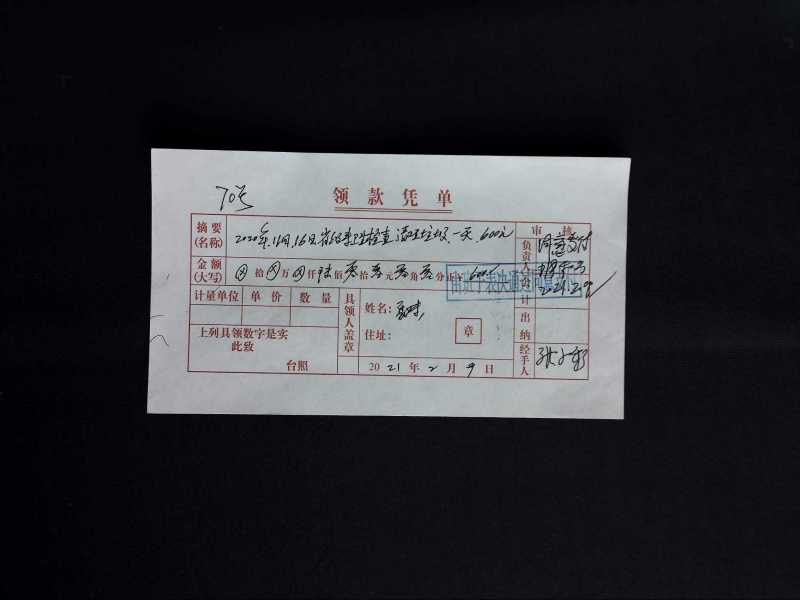 70号
领款凭单
摘要(名称) 2020年11月16日省级卫生检查,清理垃圾,一天,600元
审核
负责人 同意支付
2021.2.9
金额(大写) 拾 万 仟 陆佰 零拾 零元 零角 零分 600
会计
计量单位 单价 数量
具领人盖章
姓名:
住址:
章
出纳
上列具领数字是实
此致
台照
2021年2月9日
经手人 张